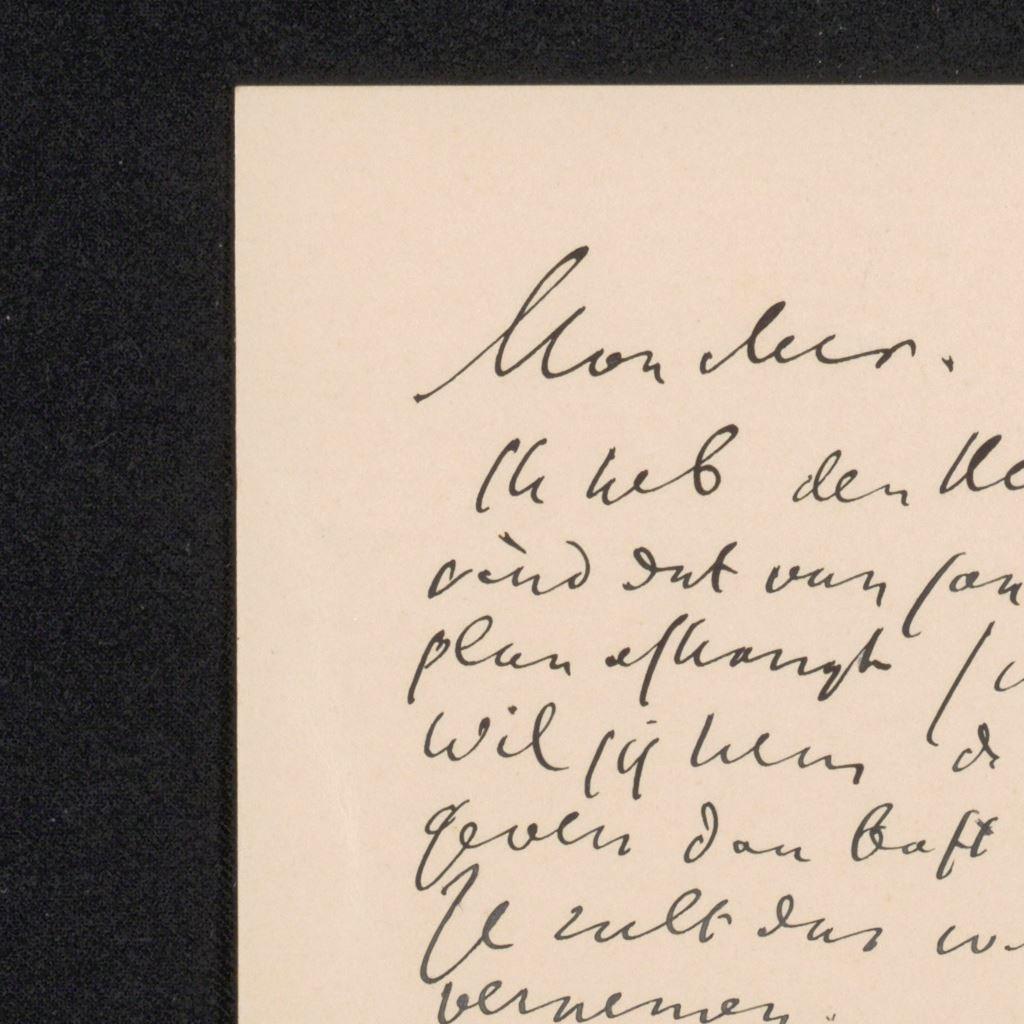 Mon cher.
Ik heb den
vind dat van
plan afhangt
Wil jij hem
geven dan
Je zult dus
vernemen.